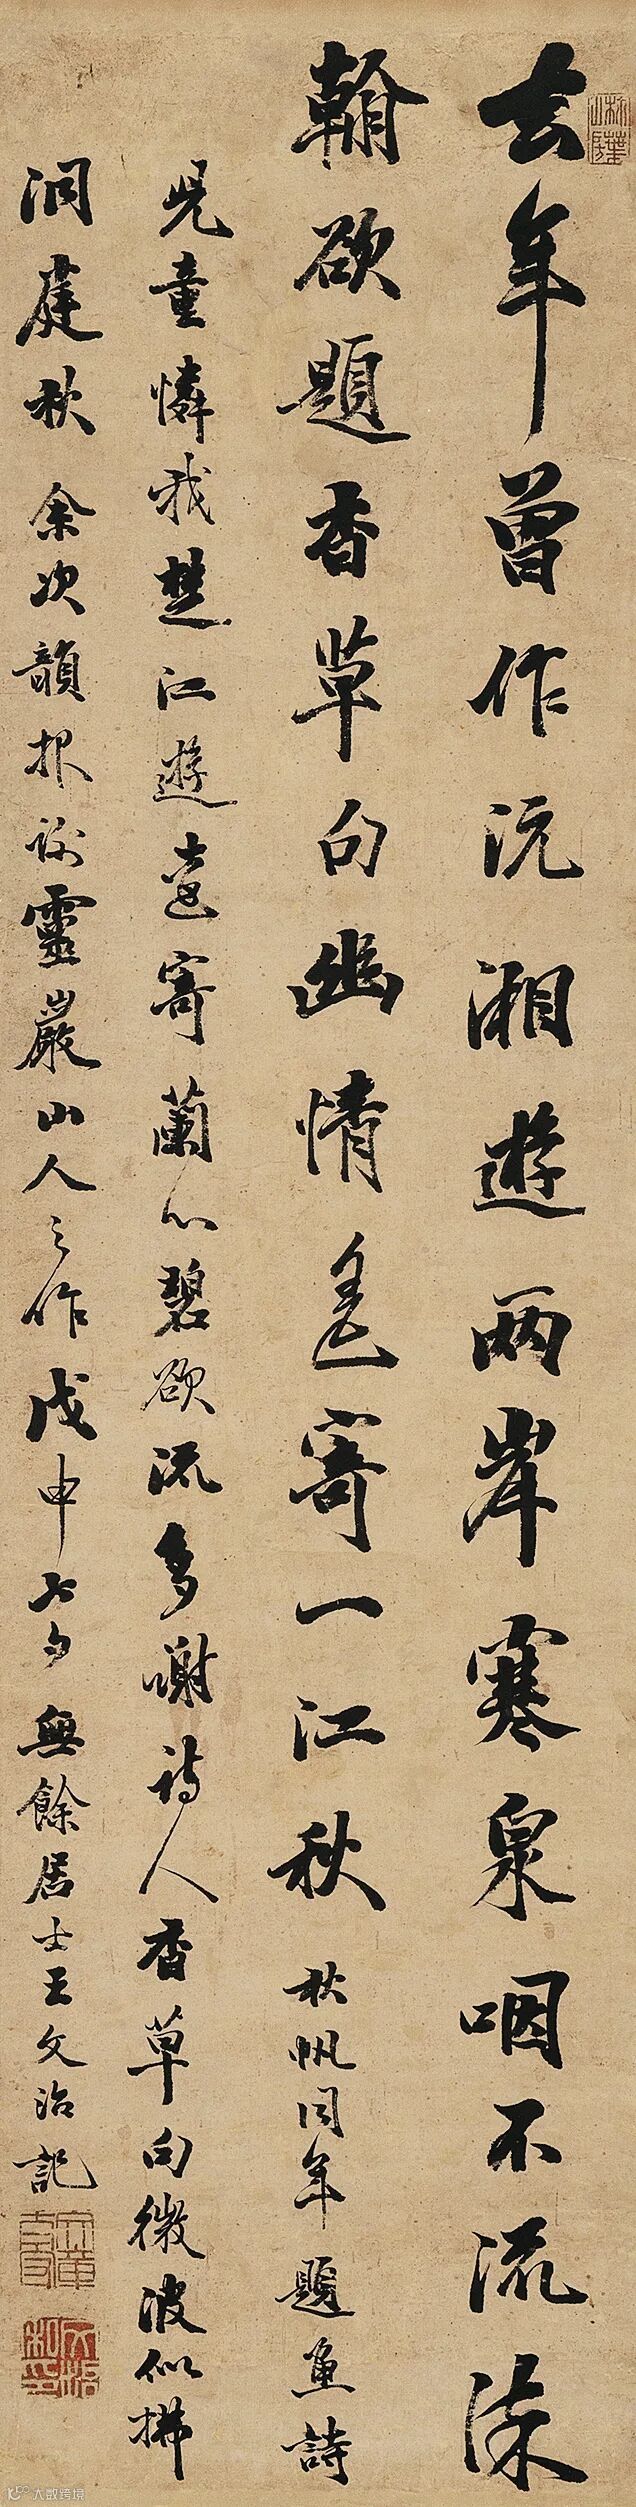 柿葉山房
去年曾作沅湘遊两岸寒泉咽不流染
翰欲題香草句幽情遙寄一江秋 秋帆同年題畫詩
兒童憐我楚江遊遠寄蘭心碧欲流多謝詩人香草句微波似拂
洞庭秋 余次韻报谢靈巖山人之作戊申七夕無餘居士王文治記
大数跨境